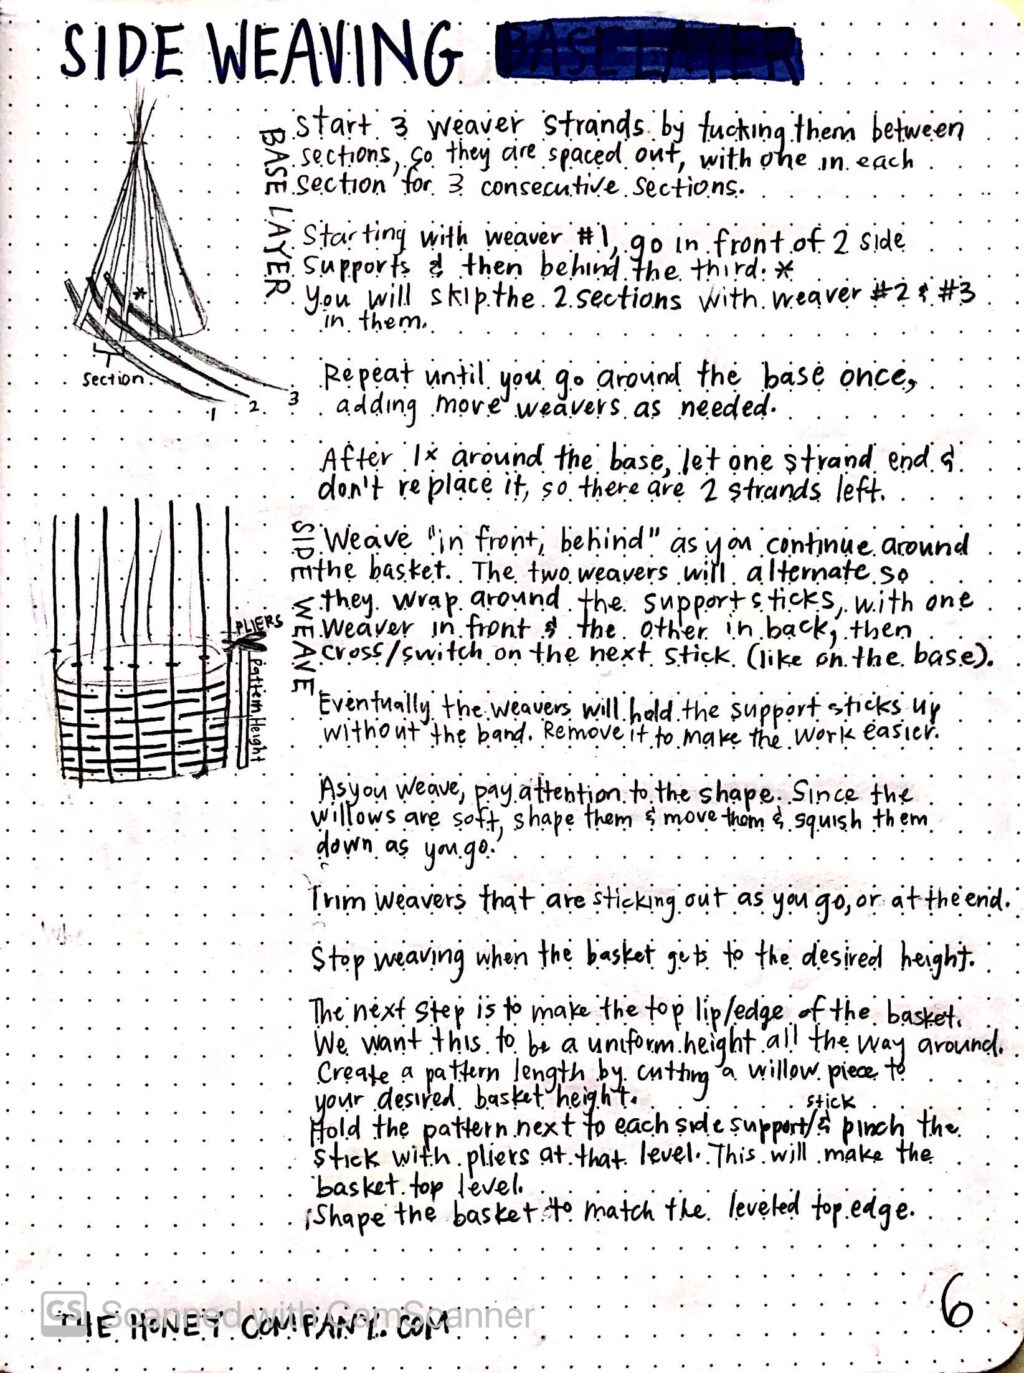 SIDE WEAVING BASE LAYER
BASE LAYER
Start 3 weaver strands by tucking them between
sections, so they are spaced out, with one in each
section for 3 consecutive sections.
Starting with weaver #1, go in front of 2 side
supports & then behind the third. *
You will skip the 2 sections with weaver #2 & #3
in them.
*
section
1 2 3
Repeat until you go around the base once,
adding more weavers as needed.
After 1x around the base, let one strand end &
don't replace it, so there are 2 strands left.
SIDE WEAVE
Weave "in front, behind" as you continue around
the basket. The two weavers will alternate so
they wrap around the support sticks, with one
weaver in front & the other in back, then
cross/switch on the next stick (like on the base).
PLIERS
Pattern Height
Eventually the weavers will hold the support sticks up
without the band. Remove it to make the work easier.
As you weave, pay attention to the shape. Since the
willows are soft, shape them & move them & squish them
down as you go.
Trim weavers that are sticking out as you go, or at the end.
Stop weaving when the basket gets to the desired height.
The next step is to make the top lip/edge of the basket.
We want this to be a uniform height all the way around.
Create a pattern length by cutting a willow piece to
your desired basket height.
stick
Hold the pattern next to each side support/& pinch the
stick with pliers at that level. This will make the
basket top level.
Shape the basket to match the leveled top edge.
CS Scanned with CamScanner
THE HONEY COMPANY.COM
6